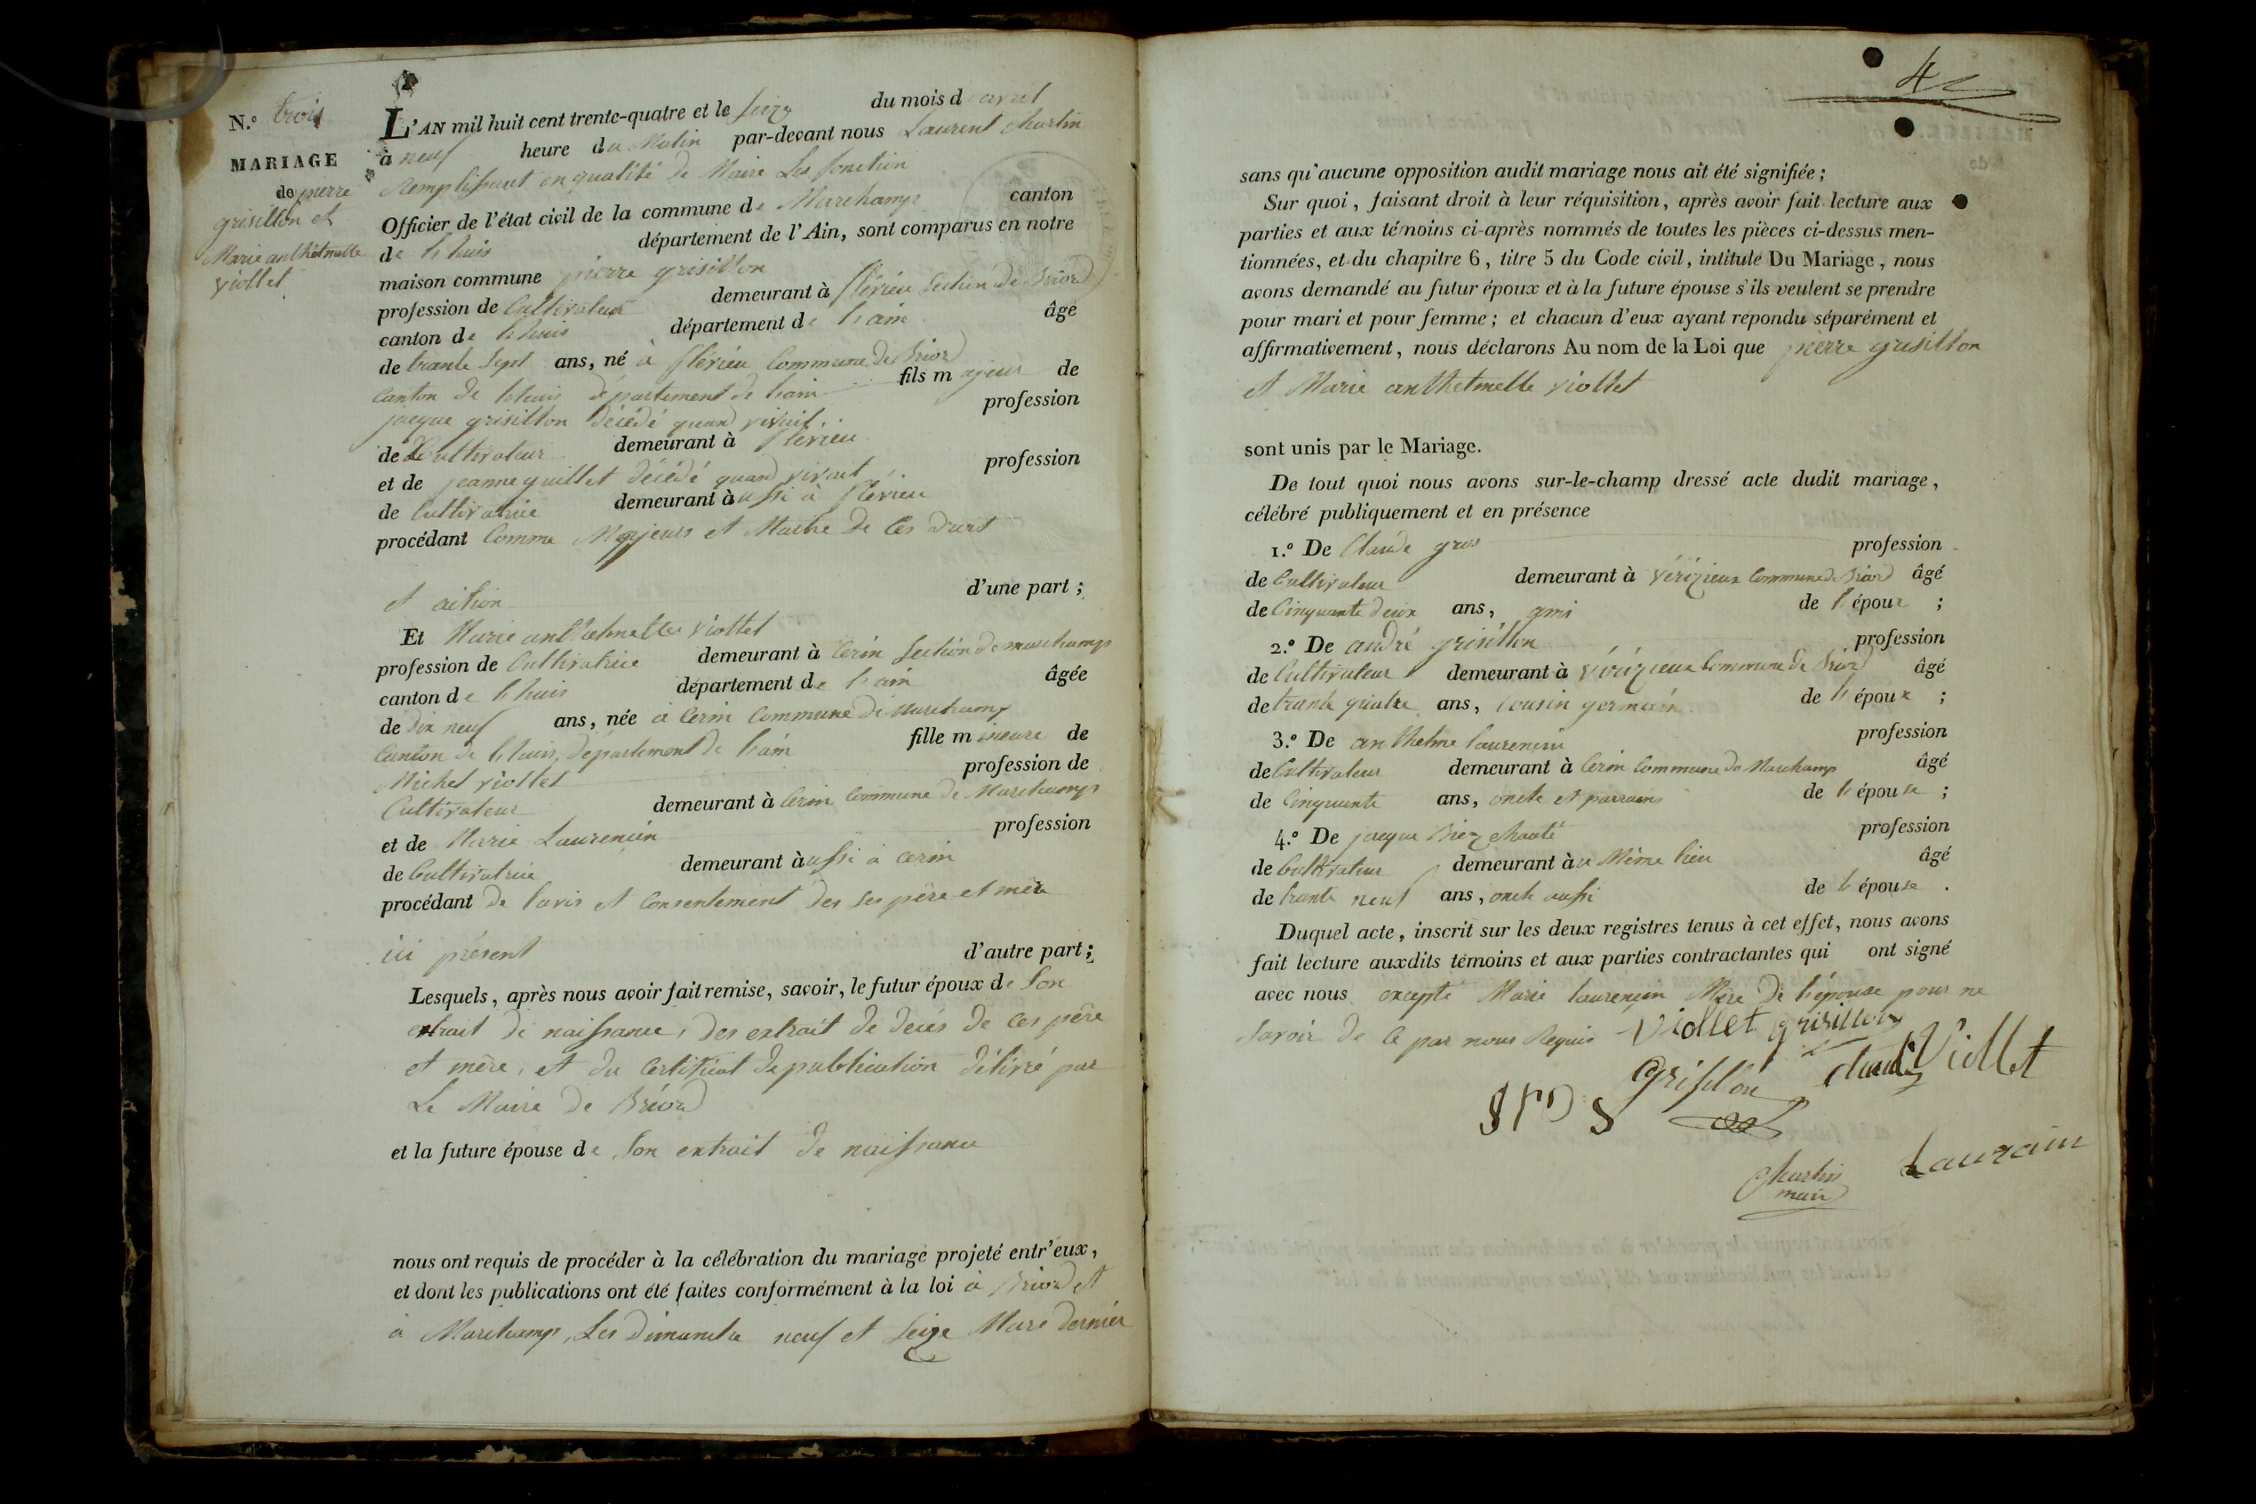 N.o trois
MARIAGE
de pierre
grisillon et
Marie anthelmette
viollet
L'AN mil huit cent trente-quatre et le seize du mois d avril
à neuf heure du Matin par-devant nous Laurent Martin
Remplissant en qualité de Maire Les fonction
Officier de l'état civil de la commune de Marchamp canton
de lhuis département de l'Ain, sont comparus en notre
maison commune pierre grisillon
profession de Cultivateur demeurant à flérieu Section de Briord
canton de lhuis département de lain âgé
de trante Sept ans, né à flérieu Commune de Briord
Canton de lhuis département de lain fils majeur de
jacque grisillon décédé quand vivait profession
de Cultivateur demeurant à flérieu
et de jeanne guillet décédé quand vivait profession
de Cultivatrice demeurant aussi à flérieu
procédant Comme Majeurs et Maitre de Ces droit
et action d'une part ;
Et Marie anthelmette viollet
profession de Cultivatrice demeurant à Cerin Section de marchamp
canton de lhuis département de lain âgée
de dix neuf ans, née à Cerin Commune de Marchamp
Canton de lhuis, département de lain fille mineure de
Michel viollet profession de
Cultivateur demeurant à Cerin Commune de Marchamp
et de Marie Laurencin profession
de Cultivatrice demeurant aussi à Cerin
procédant de lavis et Consentement des ses père et mère
ici présent d'autre part ;
Lesquels, après nous avoir fait remise, savoir, le futur époux de Son
extrait de naissance, des extrait de décés de Ces père
et mère, et du Certificat de publication délivré par
Le Maire de Briord
et la future épouse de Son extrait de naissance
nous ont requis de procéder à la célébration du mariage projeté entr'eux,
et dont les publications ont été faites conformément à la loi à Briord et
à Marchamp, Les Dimanche neuf et Seize Mars dernier
4
sans qu'aucune opposition audit mariage nous ait été signifiée ;
Sur quoi, faisant droit à leur réquisition, après avoir fait lecture aux
parties et aux témoins ci-après nommés de toutes les pièces ci-dessus men-
tionnées, et du chapitre 6, titre 5 du Code civil, intitulé Du Mariage, nous
avons demandé au futur époux et à la future épouse s'ils veulent se prendre
pour mari et pour femme ; et chacun d'eux ayant répondu séparément et
affirmativement, nous déclarons Au nom de la Loi que pierre grisillon
et Marie anthelmette viollet
sont unis par le Mariage.
De tout quoi nous avons sur-le-champ dressé acte dudit mariage,
célébré publiquement et en présence
1.o De Claude gros profession
de Cultivateur demeurant à vérizieux Commune de Briord âgé
de Cinquante deux ans, ami de lépoux ;
2.o De andré grisillon profession
de Cultivateur demeurant à vérizieux Commune de Briord âgé
de trante quatre ans, Cousin germain de lépoux ;
3.o De anthelme laurencin profession
de Cultivateur demeurant à Cerin Commune de Marchamp âgé
de Cinquante ans, oncle et parrain de lépouse ;
4.o De jacque profession
de Cultivateur demeurant au Même lieu âgé
de trante neuf ans, oncle aussi de lépouse .
Duquel acte, inscrit sur les deux registres tenus à cet effet, nous avons
fait lecture auxdits témoins et aux parties contractantes qui ont signé
avec nous excepté Marie laurencin Mère de lépouse pour ne
Savoir de Ce par nous Requis viollet grisillon
grisillon Viollet
gros
Martin
maire
Laurencin